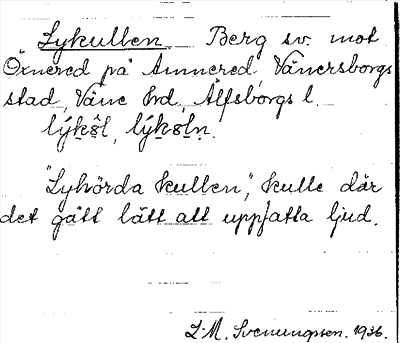 Lykullen. Berg sv. mot
Öxnered på Önnered, Vänersborgs
stad, Väne hrd, Älfsborgs l.
lýkö̂l, lýköln.
"Lyhörda kullen", kulle där
det gått lätt att uppfatta ljud.
L-M. Svenungsson. 1936.